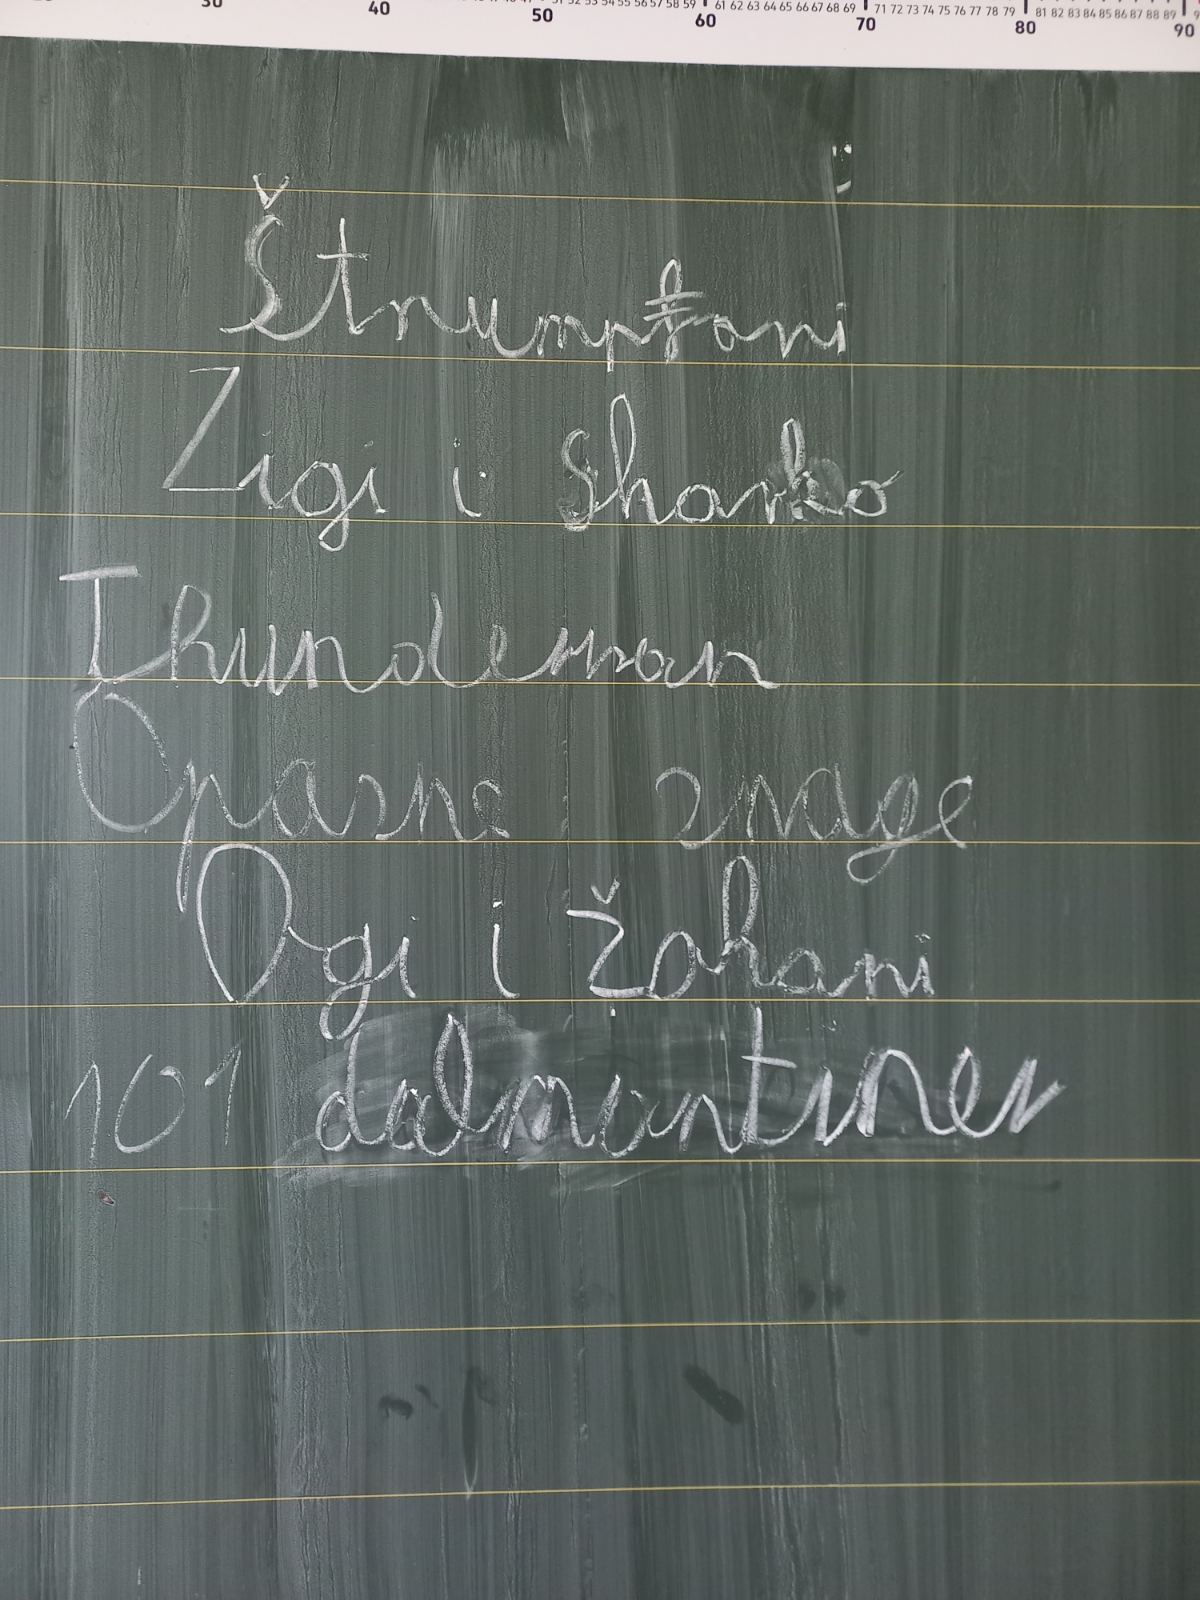 30 40 50 60 70 80 90
61 62 63 64 65 66 67 68 69 71 72 73 74 75 76 77 78 79 81 82 83 84 85 86 87 88 89
Štrumpfovi
Zigi i Sharko
Thunderman
Opasne snage
Ogi i Žohari
101 dalmantiner